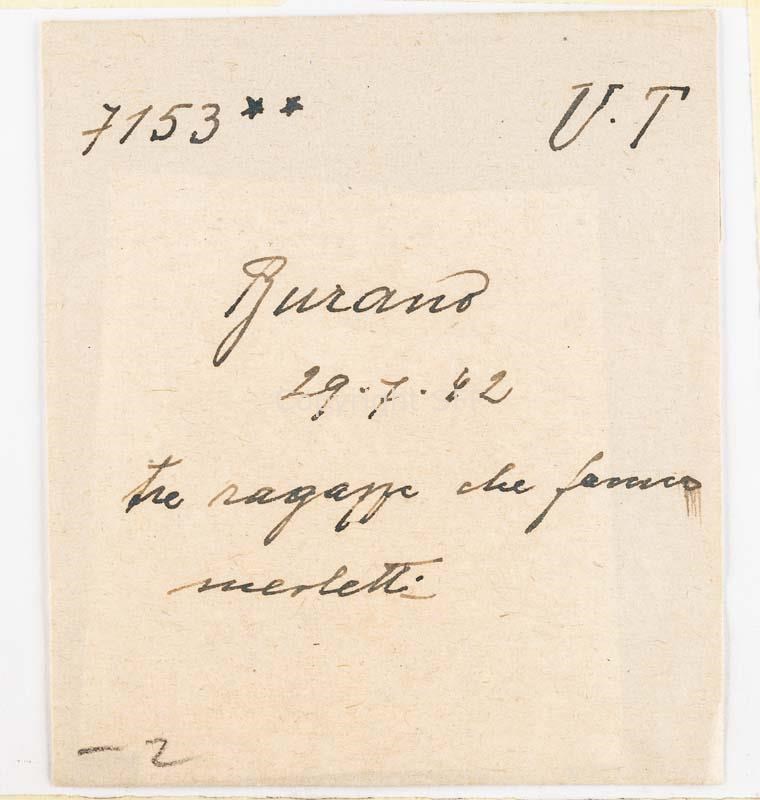 7153** U.T
Burano
29.7.42
tre ragazze che fanno
merletti
- 2